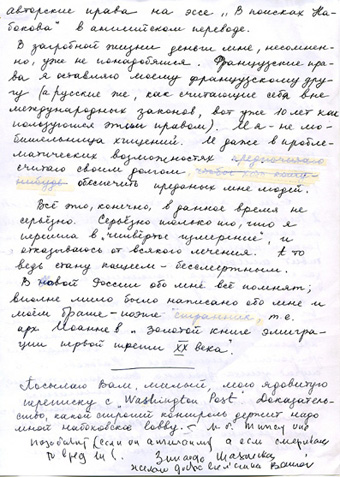 авторские права на эссе „В поисках На-
бокова" в английском переводе.
В загробной жизни деньги мне, несомнен-
но, уже не понадобятся. Французские пра-
ва я оставляю моему французскому дру-
гу (а русские же, как считающие себя вне
международных законов, вот уже 10 лет как
пользуются этим правом). И я - не лю-
бительница хищений. И даже в пробле-
матических возможностях предпочитаю
считаю своим долгом,
обеспечить преданых мне людей.
Всё это, конечно, в данное время не
серьёзно. Серьёзно только то, что я
перешла в „четвёртое измерение", и
отказываюсь от всякого лечения. А то
ведь стану пошлем - бессмертным.
В Новой России обо мне всё помнят;
вполне мило было написано обо мне и
моём брате - поэте „Страннике", т.е.
арх Иоанне в „Золотой книге эмигра-
ции первой трети XX века".
Посылаю Вам, милый, мою ядовитую
переписку с „Washington Post". Доказатель-
ство, какой строгий контроль держит надо
мной набоковское лобби. -
Зинаида Шаховская